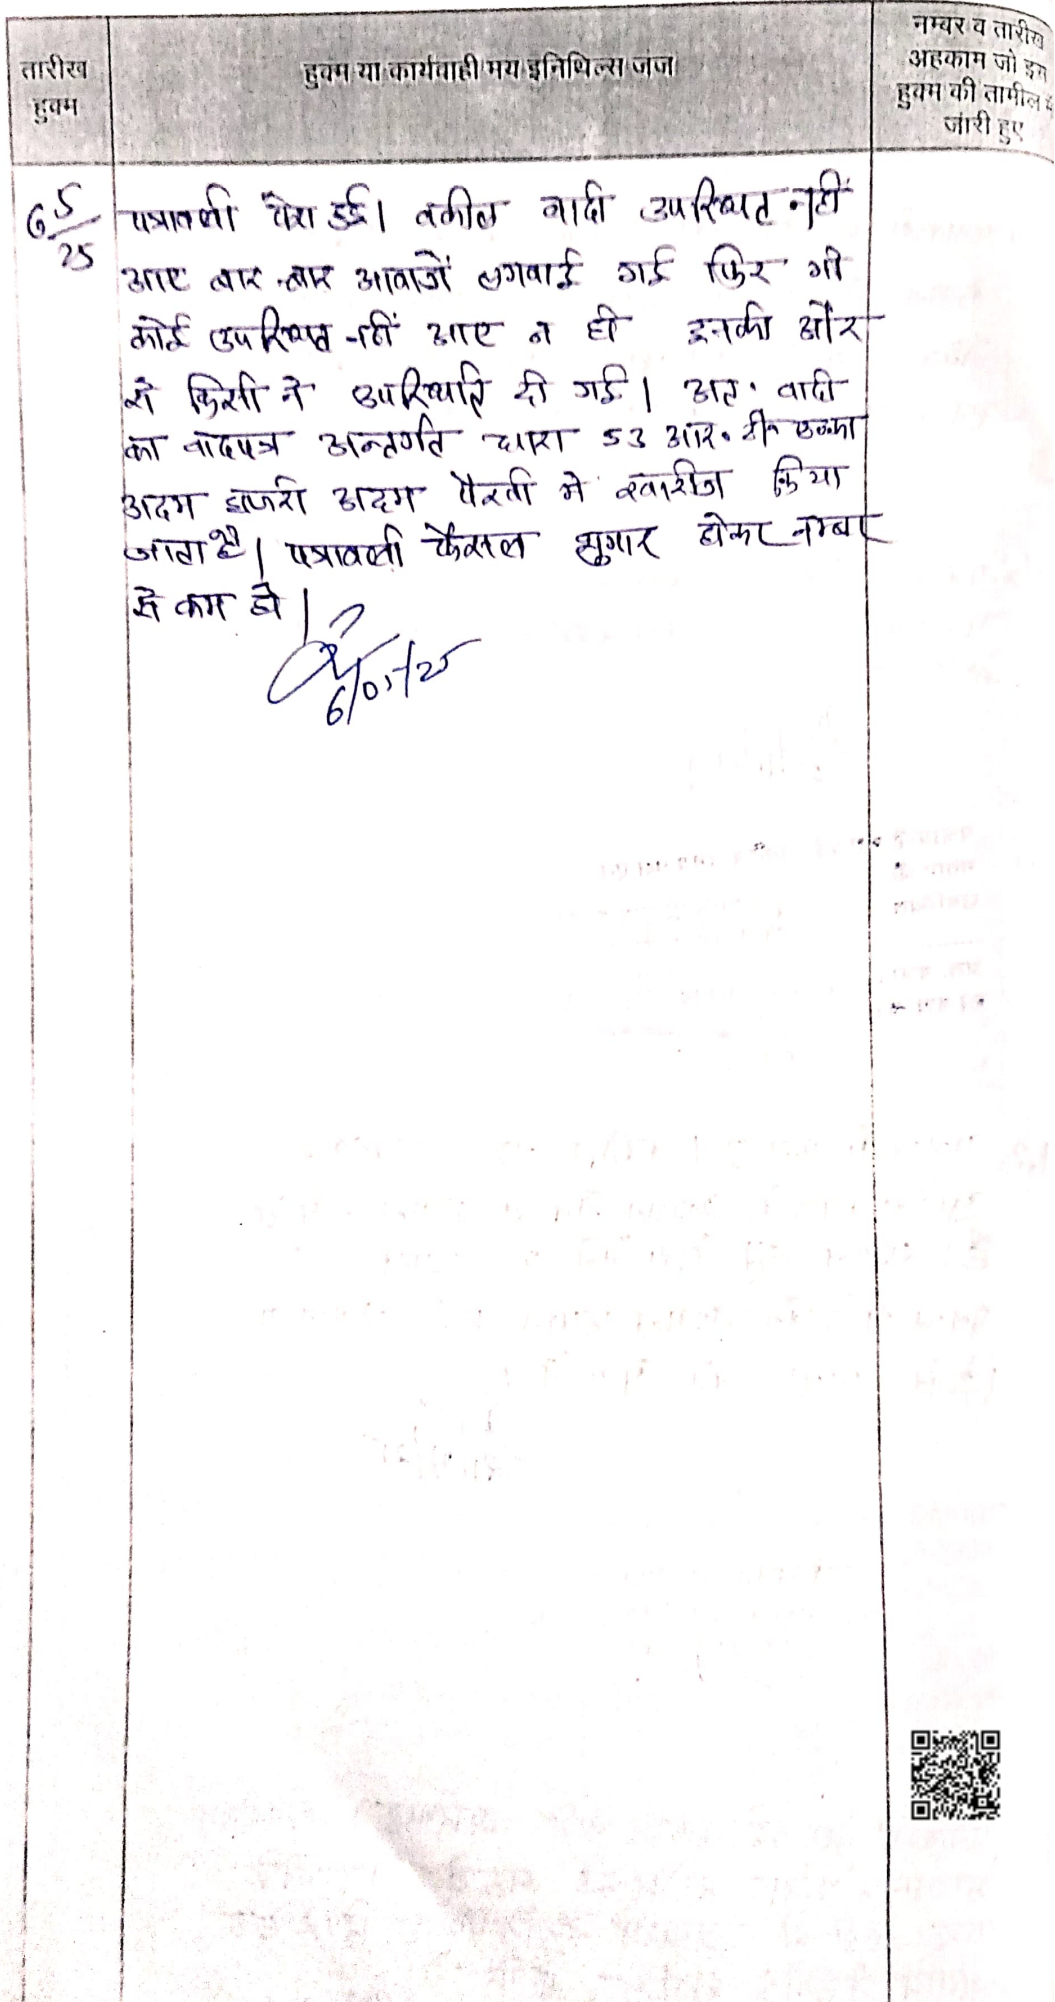 तारीख
हुक्म
हुक्म या कार्यवाही मय इनिशिल्स जज
नम्बर व तारीख
अहकाम जो इस
हुक्म की तामील में
जारी हुए
6 5/25
पत्रावली पेश हुई। वकील वादी उपस्थित नहीं
आए बार-बार आवाजें लगवाई गई फिर भी
कोई उपस्थित नहीं आए न ही इनकी ओर
से किसी ने उपस्थिति दी गई। अतः वादी
का वादपत्र अन्तर्गत धारा 53 आर. टी.
अदम हाजरी अदम पैरवी में खारीज किया
जाता है। पत्रावली फैसल शुमार होकर नम्बर
से कम हो।
6/05/25